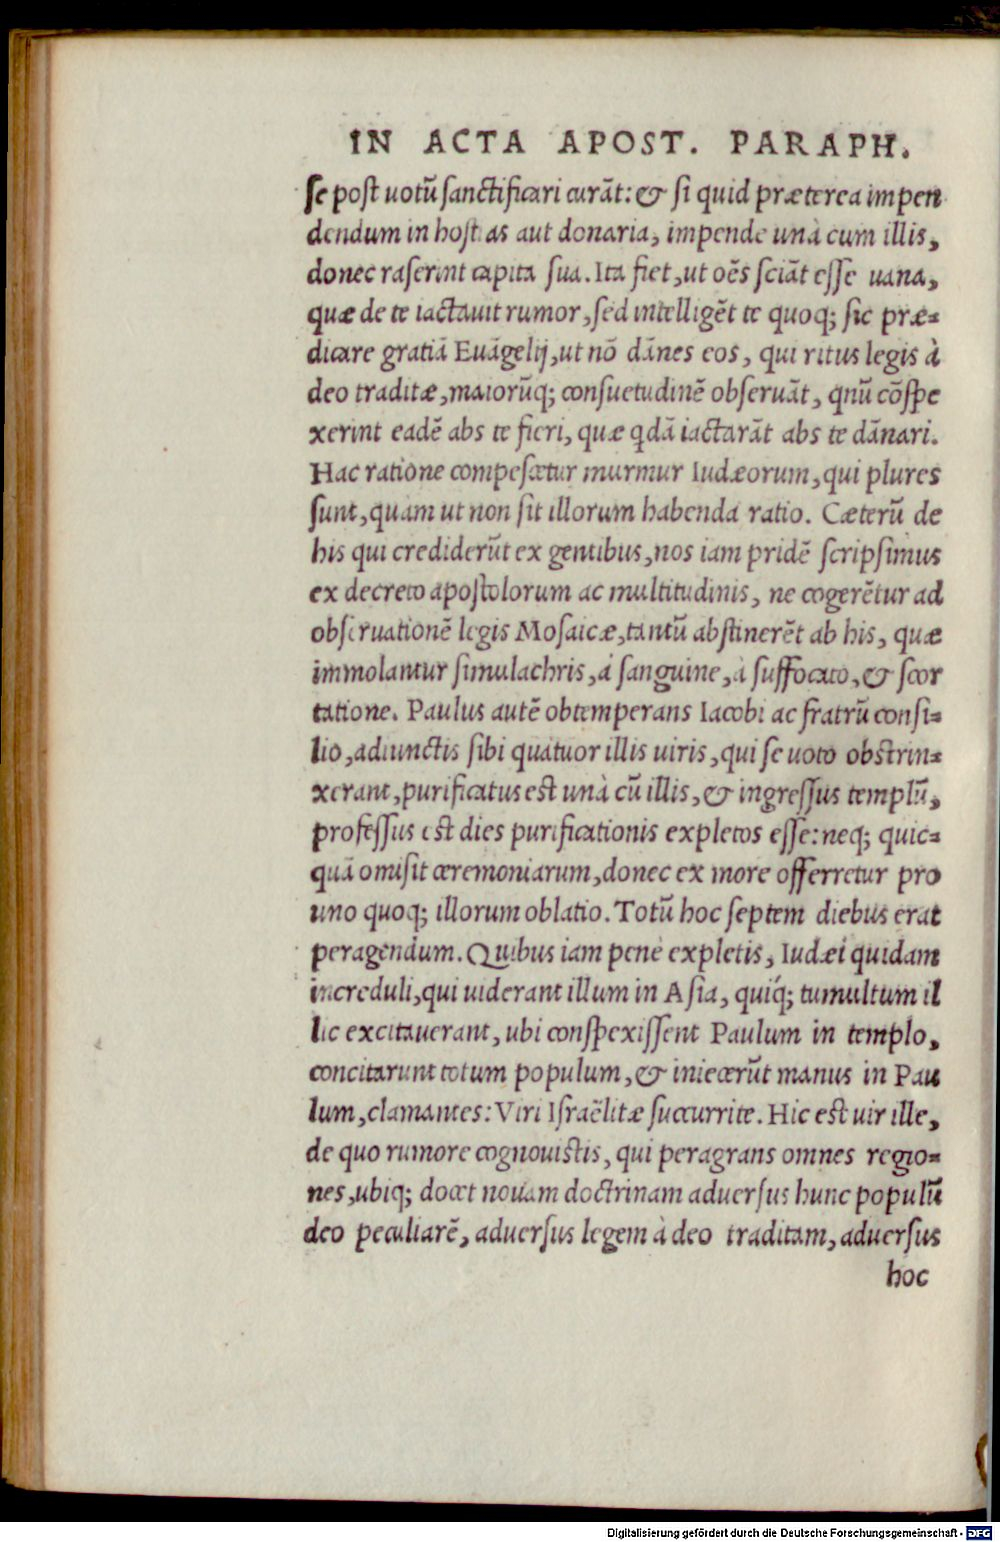 IN ACTA APOST. PARAPH.
se post uotũ sanctificari curãt: & si quid præterea impen
dendum in hostias aut donaria, impende unà cum illis,
donec raserint capita sua. Ita fiet, ut oẽs sciãt esse uana,
quæ de te iactauit rumor, sed intelligẽt te quoq; sic præ-
dicare gratiã Euãgelij, ut nõ dãnes eos, qui ritus legis à
deo traditæ, maiorũq; consuetudinẽ obseruãt, qnũ cõspe
xerint eadẽ abs te fieri, quæ qdã iactarãt abs te dãnari.
Hac ratione compescetur murmur Iudæorum, qui plures
sunt, quàm ut non sit illorum habenda ratio. Cæterũ de
his qui crediderũt ex gentibus, nos iam pridẽ scripsimus
ex decreto apostolorum ac multitudinis, ne cogerẽtur ad
obseruationẽ legis Mosaicæ, tantũ abstinerẽt ab his, quæ
immolantur simulachris, à sanguine, à suffocato, & scor
tatione. Paulus autẽ obtemperans Iacobi ac fratrũ consi-
lio, adiunctis sibi quatuor illis uiris, qui se uoto obstrin-
xerant, purificatus est unà cũ illis, & ingressus templũ,
professus est dies purificationis expletos esse: neq; quic-
quã omisit ceremoniarum, donec ex more offerretur pro
uno quoq; illorum oblatio. Totũ hoc septem diebus erat
peragendum. Quibus iam penè expletis, Iudæi quidam
increduli, qui uiderant illum in Asia, quíq; tumultum il
lic excitauerant, ubi conspexissent Paulum in templo,
concitarunt totum populum, & iniecerũt manus in Pau
lum, clamantes: Viri Israẽlitæ succurrite. Hic est uir ille,
de quo rumore cognouistis, qui peragrans omnes regio-
nes, ubiq; docet nouam doctrinam aduersus hunc populũ
deo peculiarẽ, aduersus legem à deo traditam, aduersus
hoc
Digitalisierung gefördert durch die Deutsche Forschungsgemeinschaft - DFG